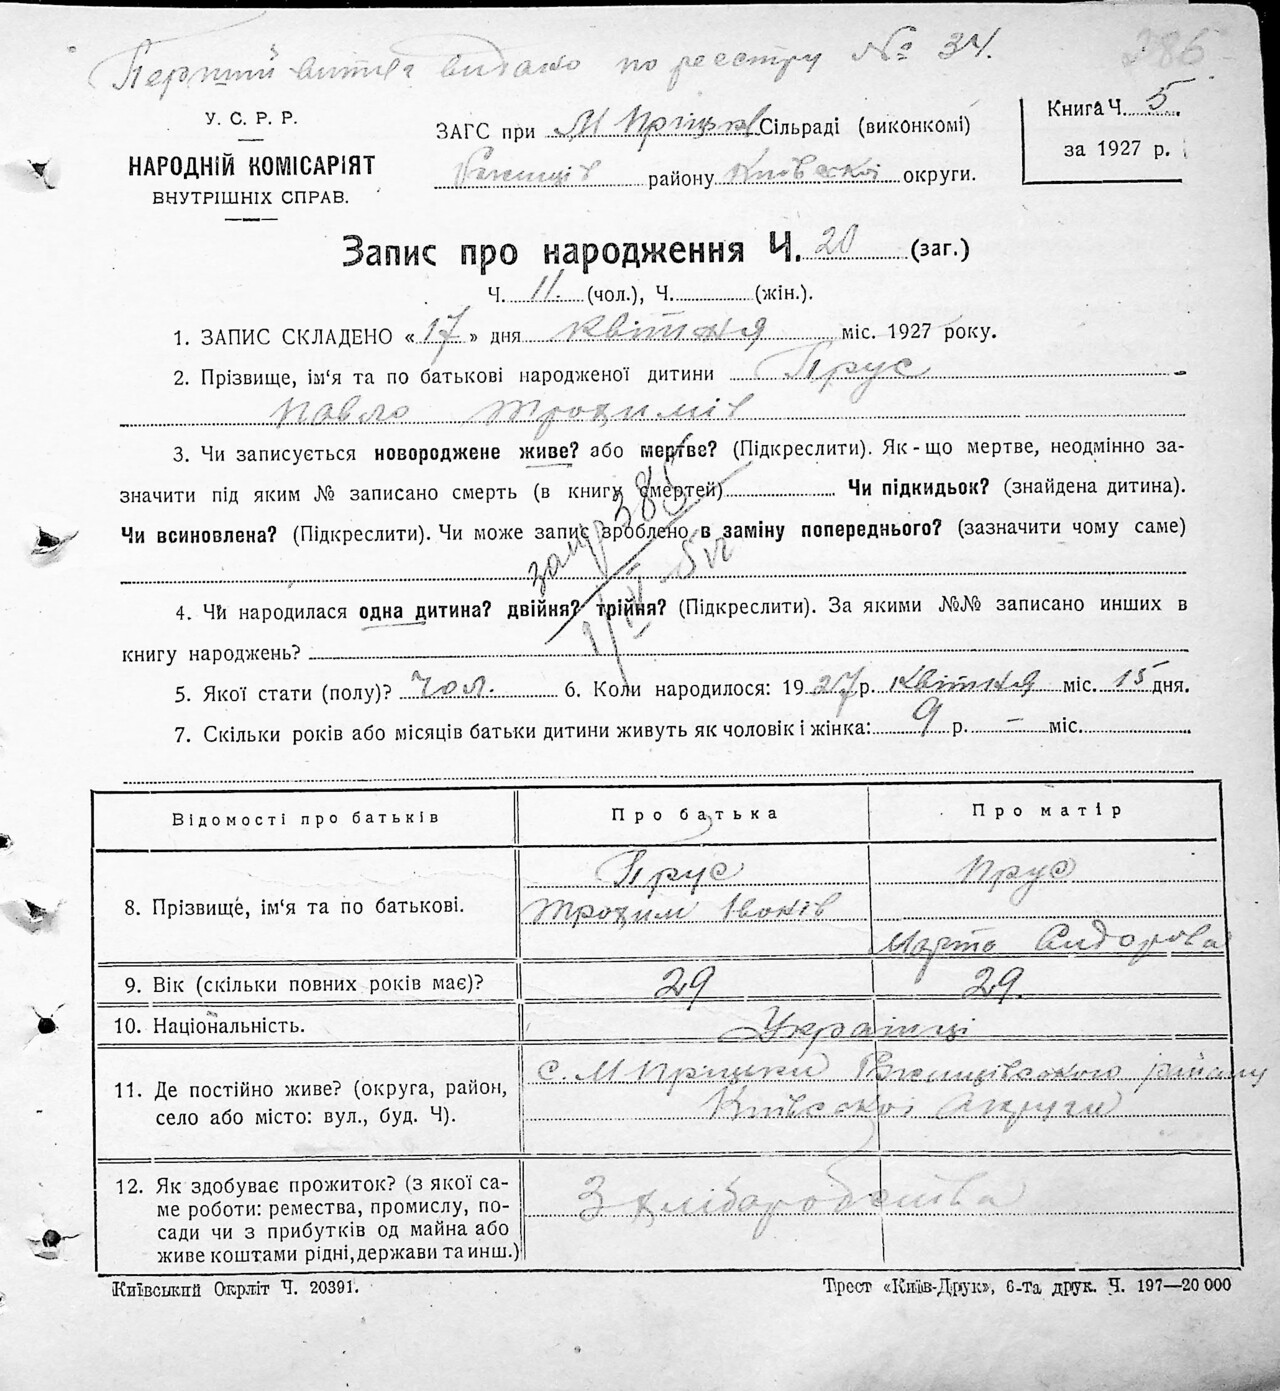 Перший витяг видано по реєстру № 34.
286
У. С. Р. Р.
НАРОДНІЙ КОМІСАРІЯТ
ВНУТРІШНІХ СПРАВ.
ЗАГС при М Пріцьків Сільраді (виконкомі)
району Київської округи.
Книга Ч. 5.
за 1927 р.
Запис про народження Ч. 20 (заг.)
Ч. 11. (чол.), Ч. (жін.).
1. ЗАПИС СКЛАДЕНО «17» дня квітня міс. 1927 року.
2. Прізвище, ім‘я та по батькові народженої дитини Прус
Павло Трохимів
3. Чи записується новороджене живе? або мертве? (Підкреслити). Як-що мертве, неодмінно за-
значити під яким № записано смерть (в книгу смертей) Чи підкидьок? (знайдена дитина).
Чи всиновлена? (Підкреслити). Чи може запис зроблено в заміну попереднього? (зазначити чому саме)
385
4. Чи народилася одна дитина? двійня? трійня? (Підкреслити). За якими №№ записано инших в
книгу народжень?
5. Якої стати (полу)? чол. 6. Коли народилося: 1927 р. квітня міс. 15 дня.
7. Скільки років або місяців батьки дитини живуть як чоловік і жінка: 9 р. – міс.
Відомості про батьків Про батька Про матір
8. Прізвище, ім‘я та по батькові. Прус Прус
Трохим Іванів
Марта Сидорова
9. Вік (скільки повних років має)? 29 29.
10. Національність. Українці
11. Де постійно живе? (округа, район,
село або місто: вул., буд. Ч).
с. М Пріцьки Ржищівського району
Київської округи
12. Як здобуває прожиток? (з якої са-
ме роботи: ремества, промислу, по-
сади чи з прибутків од майна або
живе коштами рідні, держави та инш.)
З хліборобства
Київський Окрліт Ч. 20391.
Трест «Київ-Друк», 6-та друк. Ч. 197—20 000